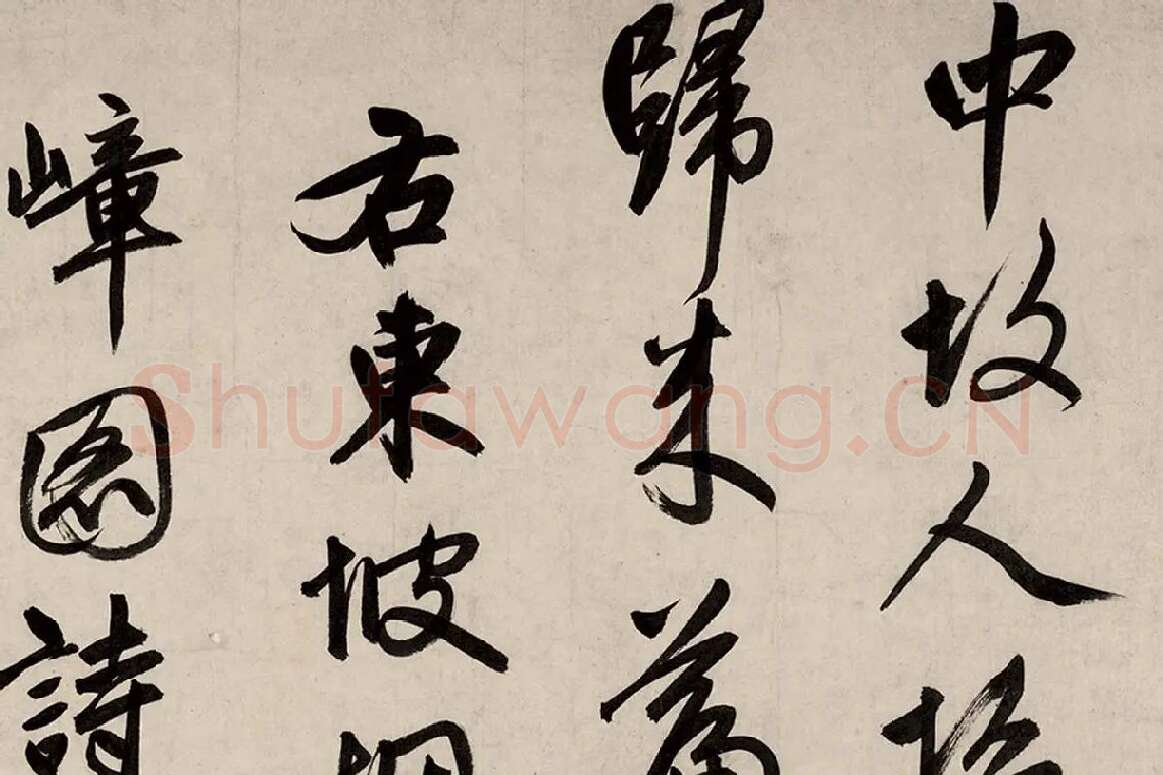 中故人招
歸来篇
右東坡烟
嶂圖詩
Shufawang.CN